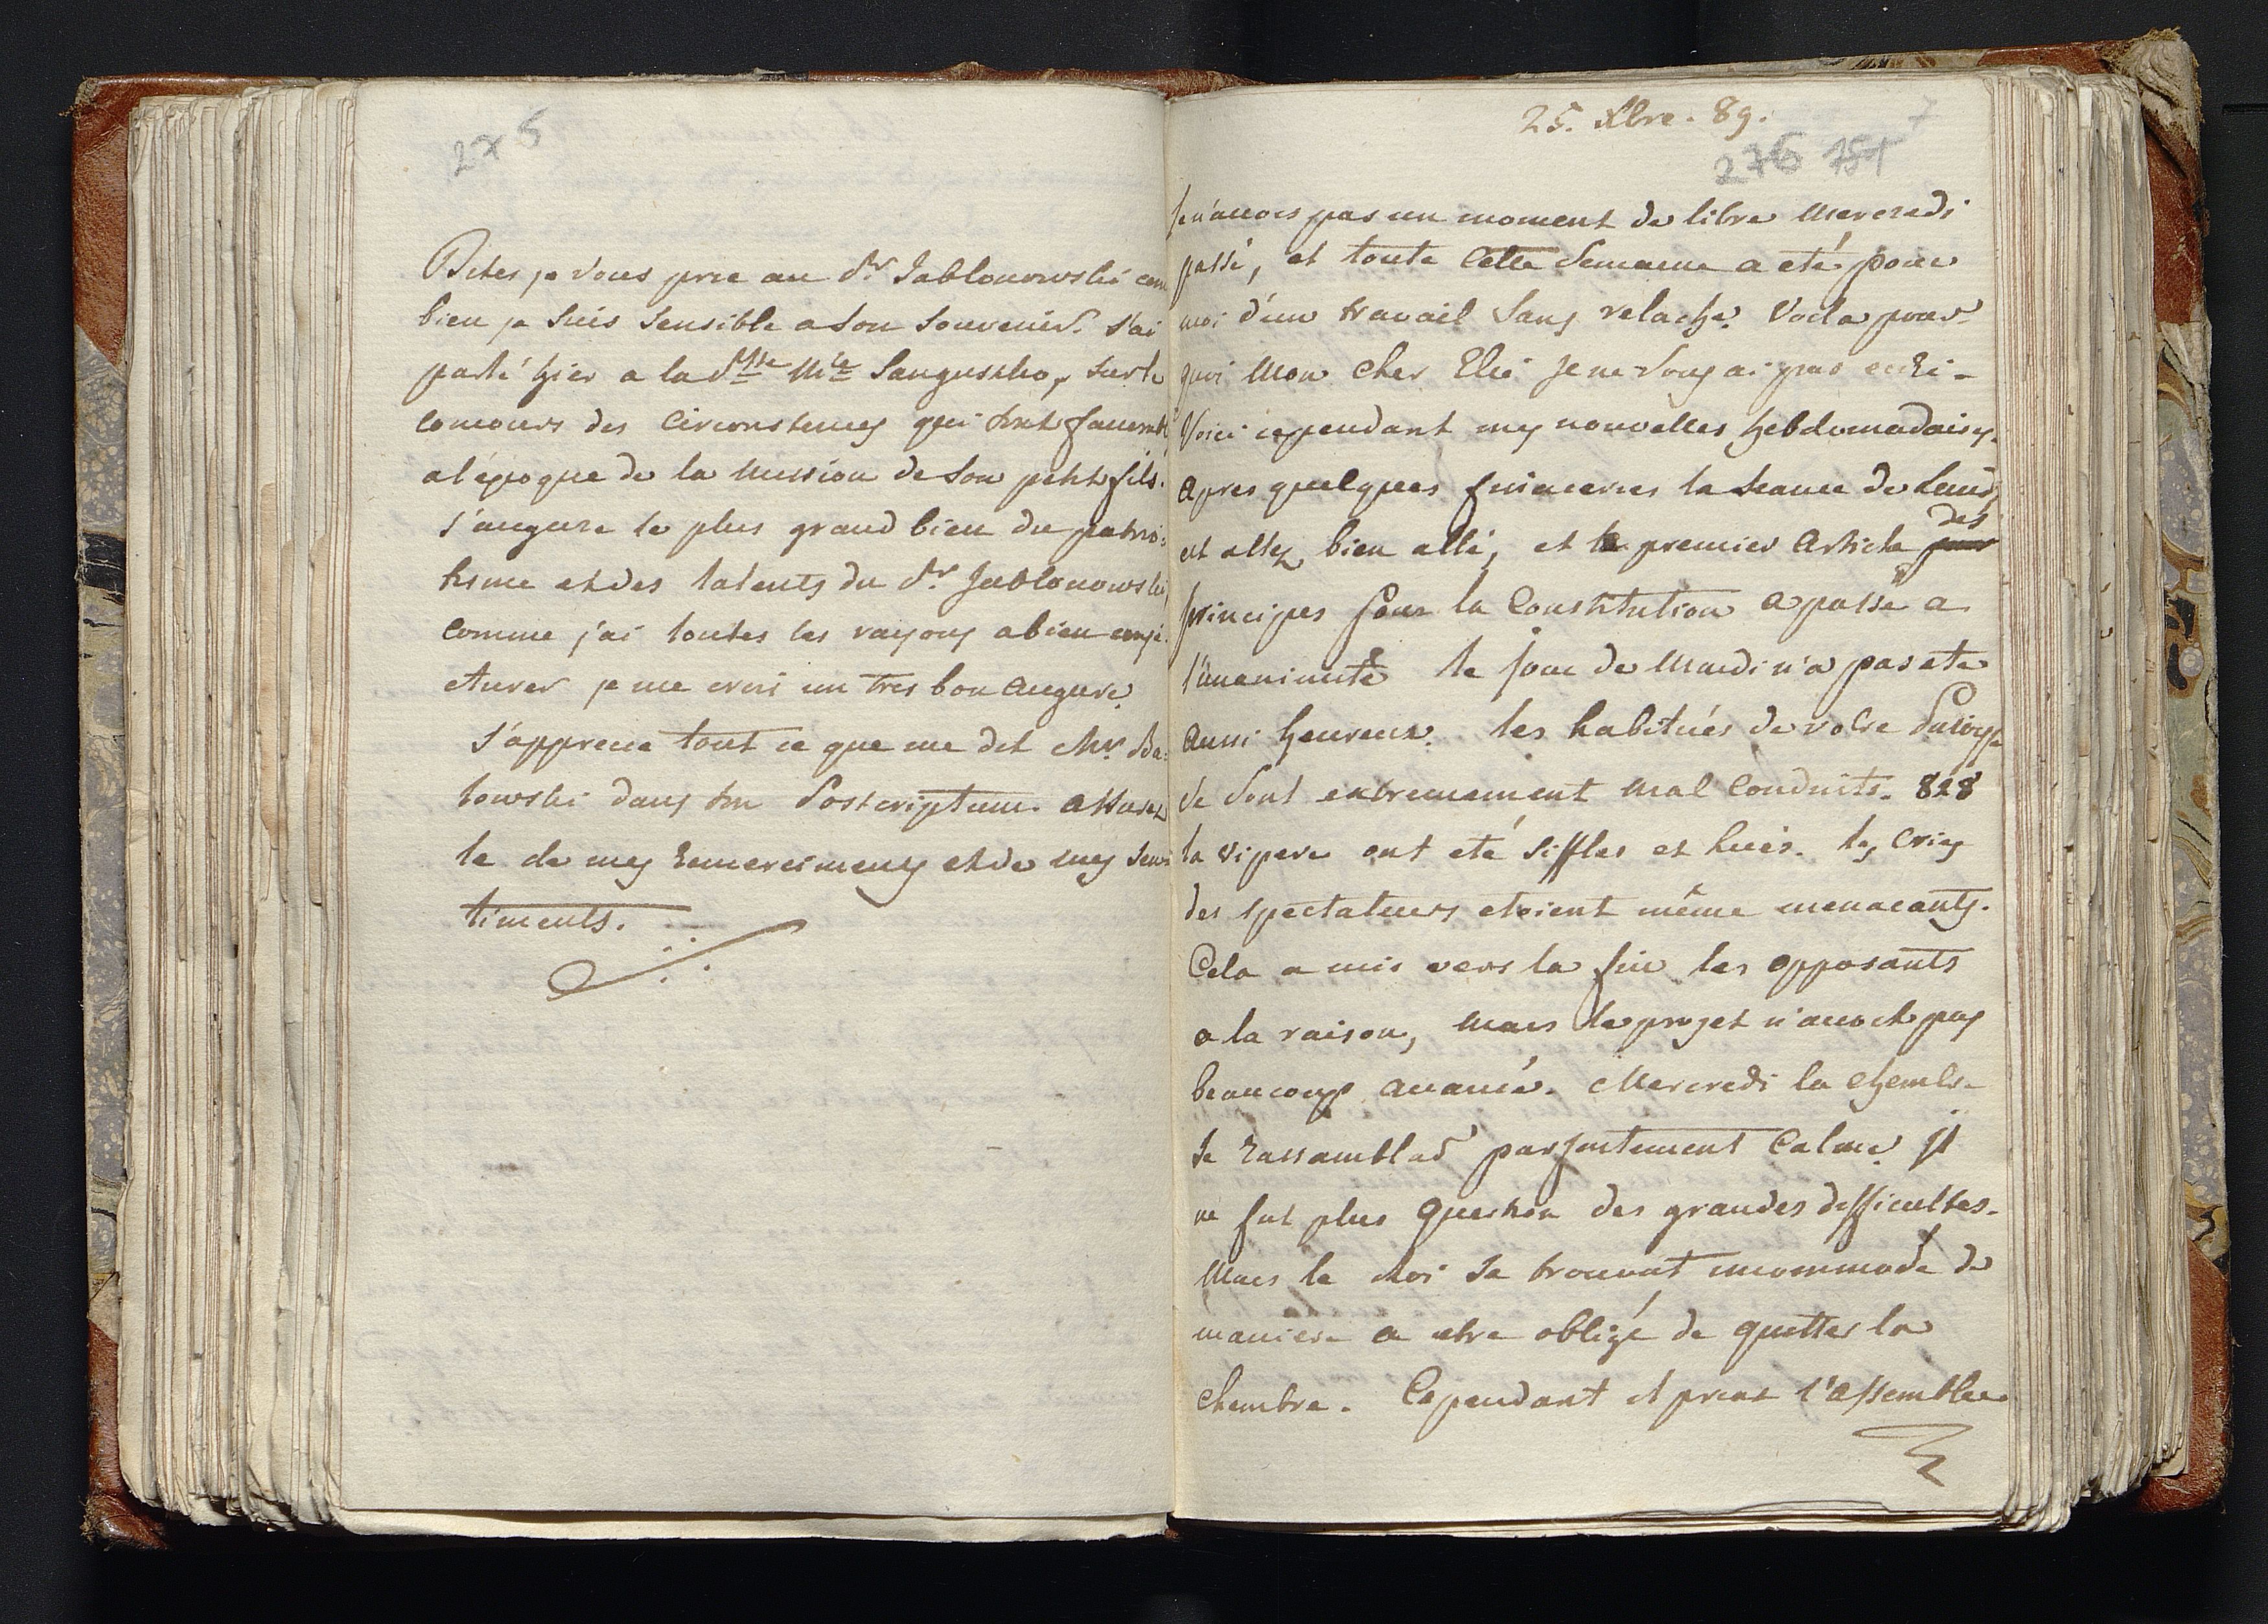 275
Dites je vous prie au Pr Jablonowski com
bien je suis sensible a son souvenir. J'ai
parlé hier a la Psse Mle Sanguszko, sur le
concours des circonstences qui sont favorabl
a l'époque de la mission de son petit fils.
J'augure le plus grand bien du patrio=
tisme et des talents du Pr Jablonowski,
comme j'ai toutes les raysons a bien conje-
cturer je me crois un tres bon augure.
J'apprecie tout ce que me dit Mr Ba=
towski dans son Postcriptum. Assurez
le de mes remercimens et de mes sen
timents.
25. Xbre. 89.
7
276 781
Je n'avois pas un moment de libre mercredi
passé, et toute cette semaine a eté pour
moi d'un travail sans relache. Voila pour
quoi Mon Cher Elie je ne vous ai pas ecri-
Voici cependant mes nouvelles hebdomadaires.
Apres quelques finaceries la seance de Lundi
est assez bien allé, et le premier Article pour des
principes pour la Constitution a passé a
l'unanimité le jour de Mardi n'a pas eté
aussi heureux. les habitués de votre Puisse
se sont extremement mal conduits. 828
la vipere ont eté siffles et hués. les cris
des spectateurs etoient même menacants.
Cela a mis vers la fin les opposants
a la raison, mais le projet n'avoit pas
beaucoup avancé. Mercredi la chembr-
se rassembla parfaitement calme. Il
ne fut plus question des grandes difficultes.
Mais le Roi se trouvoit incommodé de
maniere a etre obligé de quitter la
chembre. Cependant il priat l'assemblee